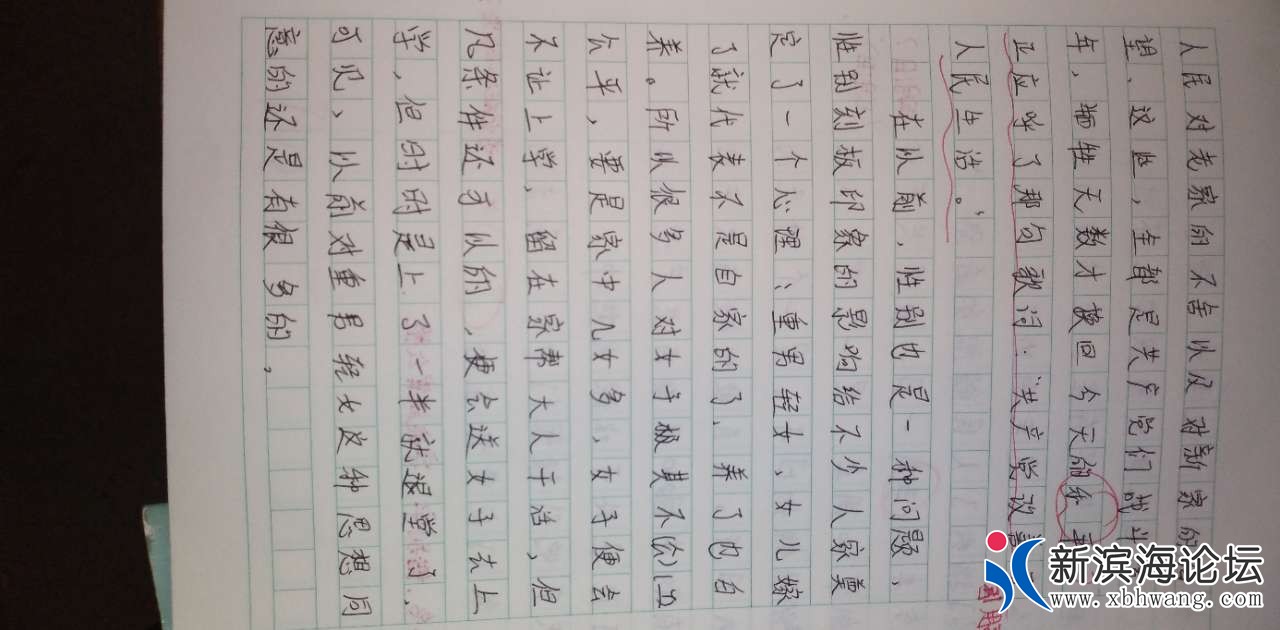 人民对老家的不舍以及对新家的
望、这些,全都是共产党们战斗
年,牺牲无数才换回今天的和平
正应呼了那句歌词:“共产党改善
人民生活。”
在从前,性别也是一种问题、
性别刻板印象的影响给不少人家奠
定了一个心理:重男轻女、女儿嫁
了就代表不是自家的了,养了也白
养。所以很多人对女子极其不公
公平,要是家中儿女多、女子便会
不让上学,留在家帮大人干活,但
凡条件还可以的,便会送女子去上
学,但时时是上了一半就退堂了.
可见、以前对重男轻女这种思想同
意的还是有很多的,
新滨海论坛
www.xbhwang.com